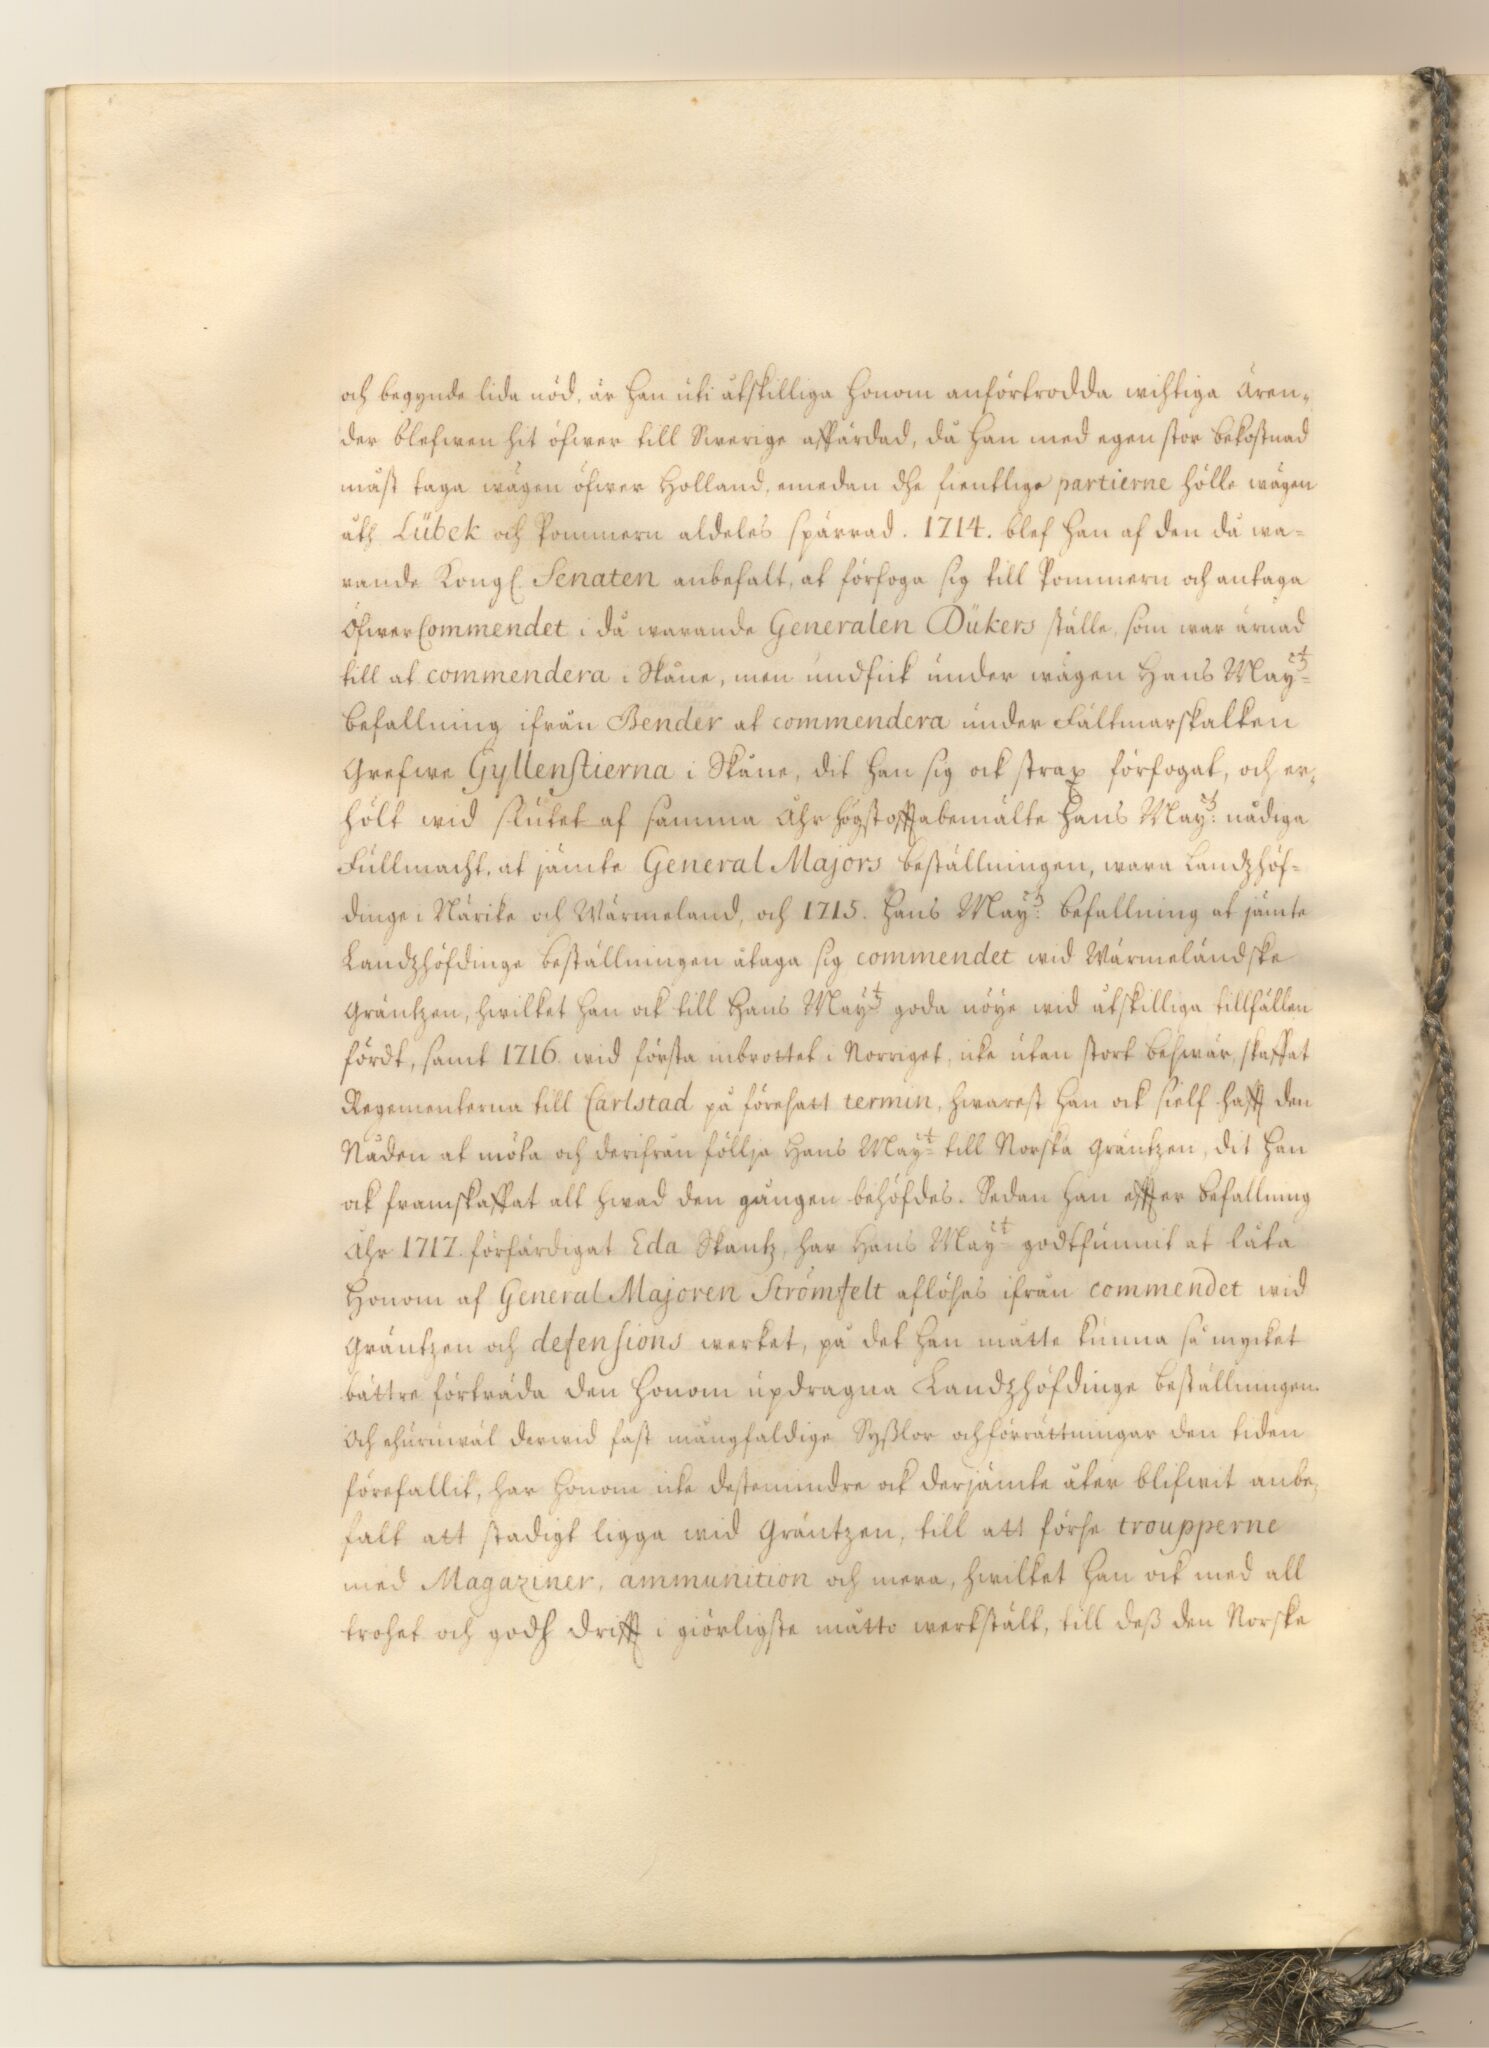 och begynde lida nöd, är han uti åtskilliga honom anförtrodda wichtiga ären-
der blefwen hit öfwer till Swerige affärdad, då han med egen stor bekostnad
måst taga wägen öfwer Holland, emedan dhe fientlige partierne hölle wägen
åth Lübek och Pommern aldeles spärrad. 1714. blef han af den då wa-
rande Kongl. Senaten anbefalt, at förfoga sig till Pommern och antaga
ÖfwerCommendet i då warande Generalen Dükers ställe, som war ärnad
till at commendera i Skåne, men undfick under wägen Hans Mayt:
befallning ifrån Bender at commendera under Fältmarskalken
Grefwe Gyllenstierna i Skåne, dit han sig ock strax förfogat, och er-
hölt wid slutet af samma Åhr högstofftabemälte Hans Maytz: nådiga
Fullmacht, at jämte General Majors beställningen, wara Landzhöf-
dinge i Närike och Wärmeland, och 1715. Hans Maytz: befallning at jämte
Landzhöfdinge beställningen åtaga sig commendet wid Wärmeländske
Gräntzen, hwilket han ock till Hans Maytz goda nöye wid åtskilliga tillfällen
fördt, samt 1716. wid första inbrottet i Norriget, icke utan stort beswär, skaffat
Regementerna till Carlstad på föresatt termin, hwarest han ock sielf hafft den
Nåden at möta och derifrån föllja Hans Mayt: till Norska Gräntzen, dit han
ock framskaffat alt hwad den gången behöfdes. Sedan han effter befallning
Åhr 1717. förfärdigat Eda Skantz, har Hans Mayt: godtfunnit at låta
Honom af General Majoren Strömfelt aflösas ifrån commendet wid
Gräntzen och defensions werket, på det han måtte kunna så mycket
bättre förträda den Honom updragna Landzhöfdinge beställningen.
Och ehuruwäl derwid fast mångfaldige Sysslor och förrättningar den tiden
förefallit, har honom icke dessmindre ock derjämte åter blifwit anbe-
falt att stadigt ligga wid Gräntzen, till att förse troupperne
med Magaziner, ammunition och mera, hwilket han ock med all
trohet och godh drifft i giörligste måtto werkstält, till dess den Norske